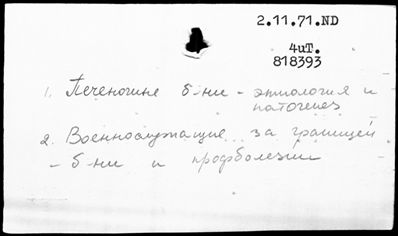 2.11.71.ND
4иТ.
818393
1. Печеночные б-ни - этиология и
патогенез
2. Военнослужащие за границей
- б-ни и профболезни